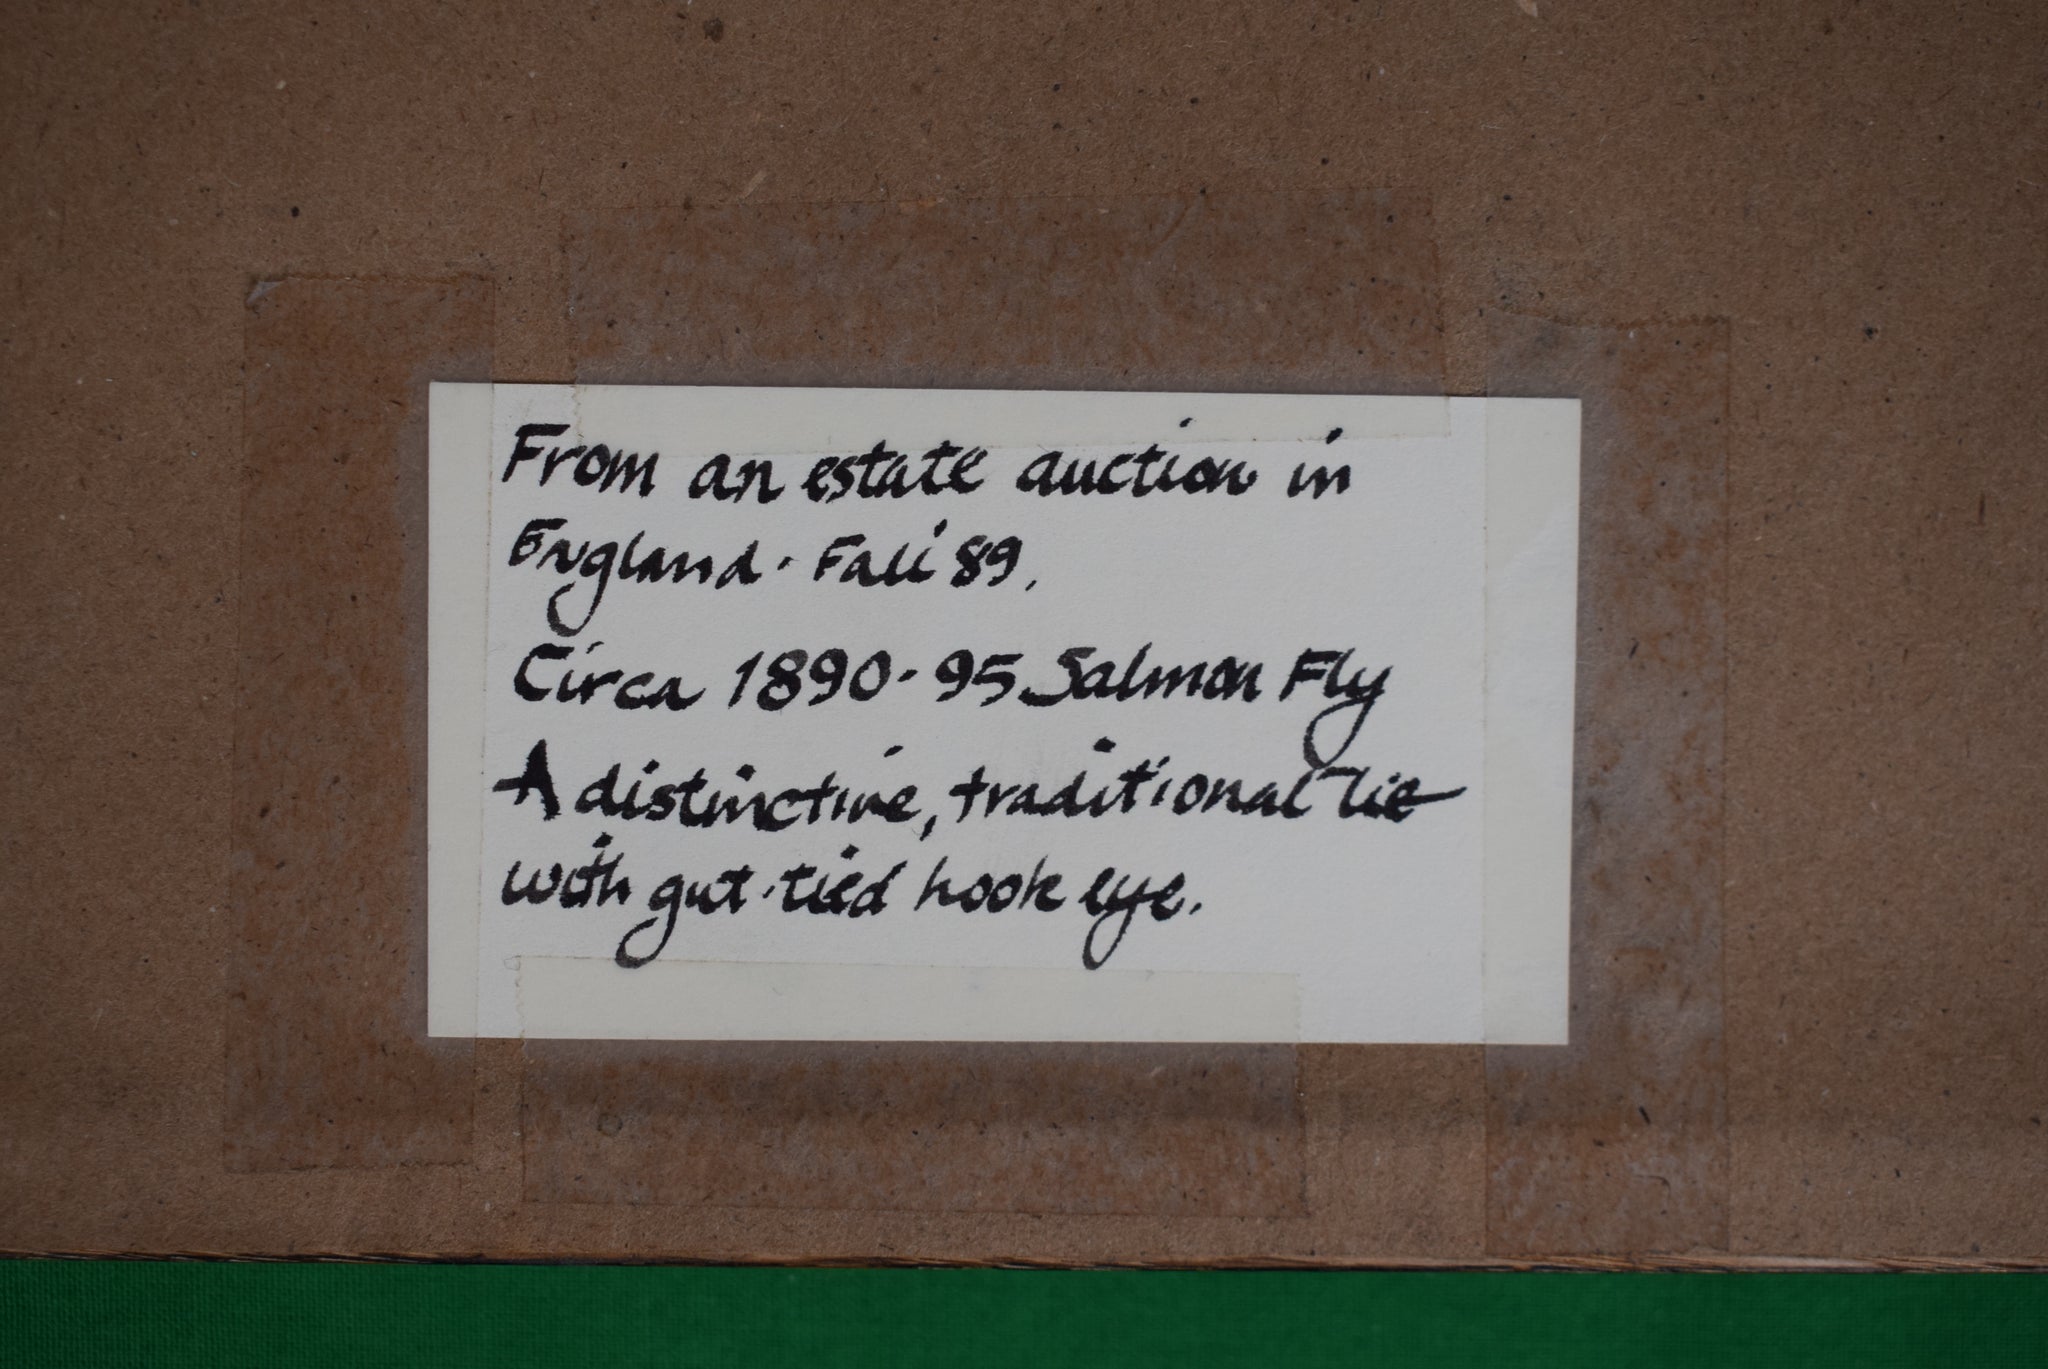 From an estate auction in
England. Fall '89.
Circa 1890-95 Salmon Fly
A distinctive, traditional tie
with gut-tied hook eye.